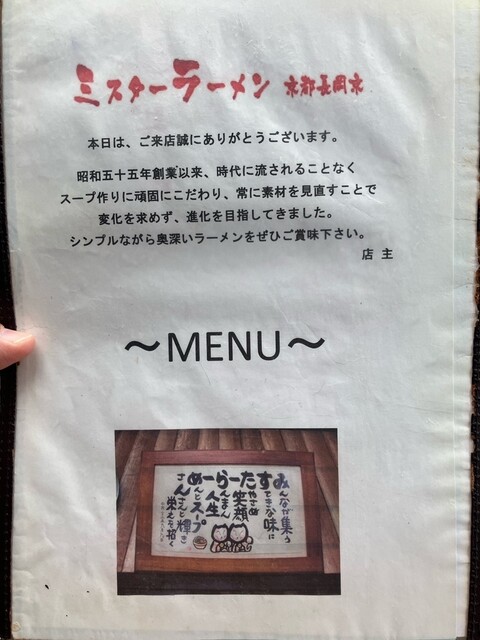 ミスターラーメン 京都長岡京
本日は、ご来店誠にありがとうございます。
昭和五十五年創業以来、時代に流されることなく
スープ作りに頑固にこだわり、常に素材を見直すことで
変化を求めず、進化を目指してきました。
シンプルながら奥深いラーメンをぜひご賞味下さい。
店 主
～MENU～
みんなが集う
すてきな味に
たやさぬ笑顔
らーんまん人生
めんとスープ
さんさんと輝き
栄えを招く